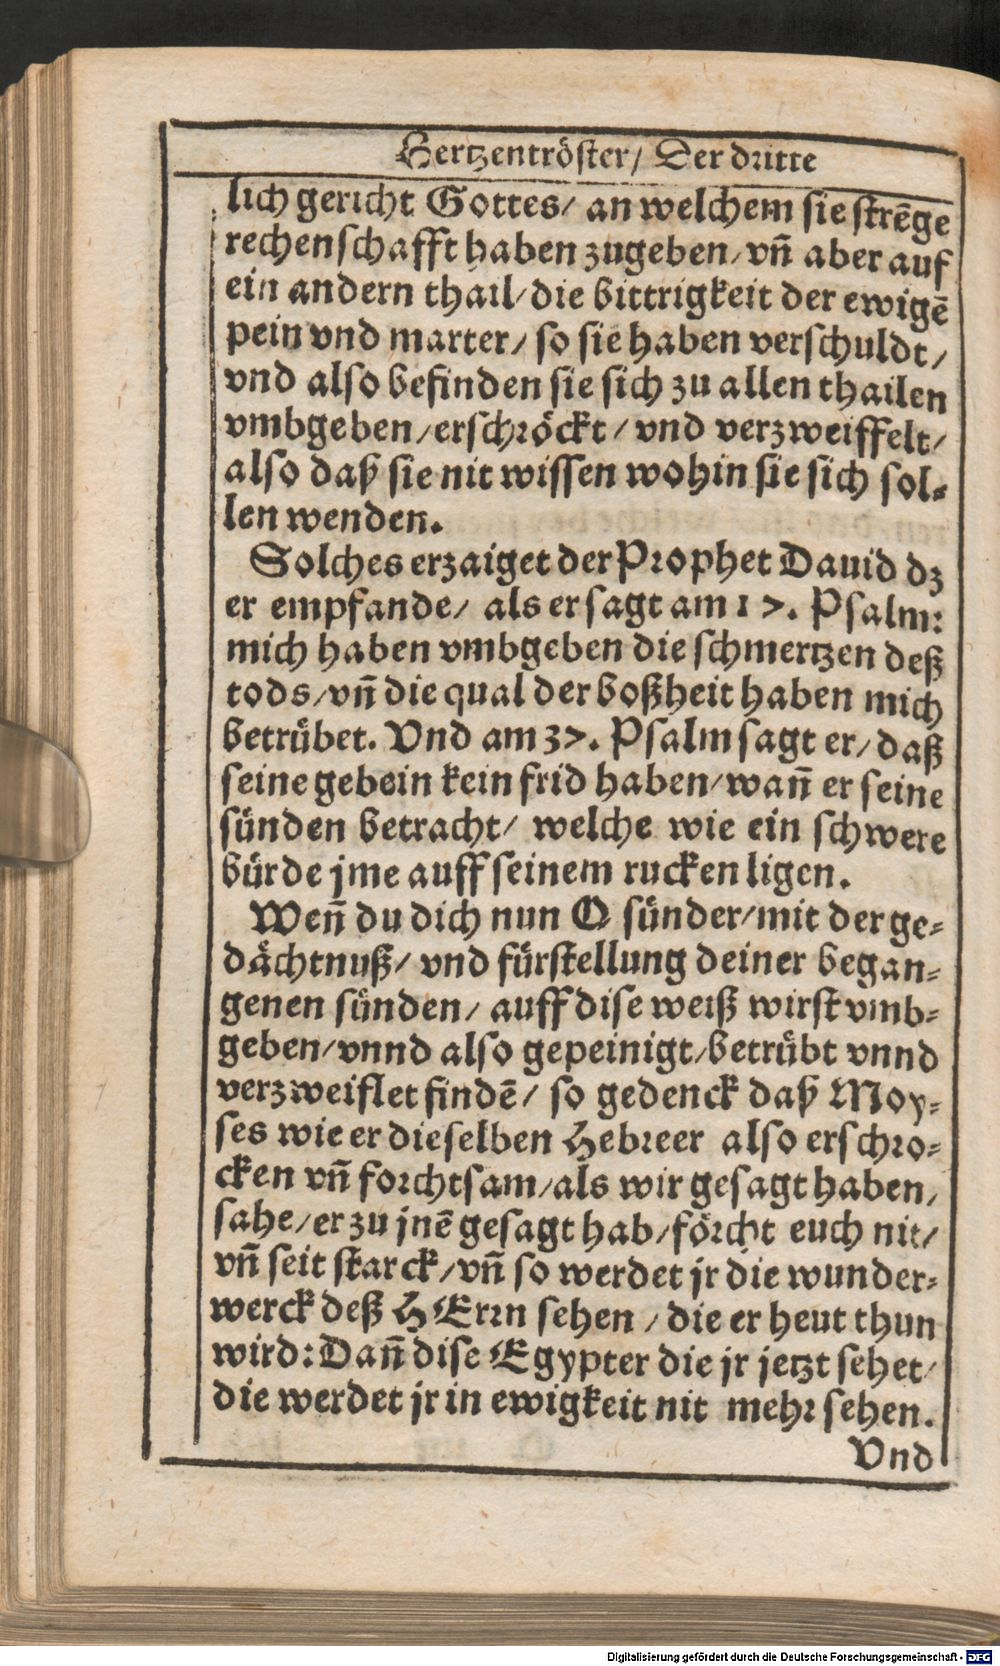 Hertzentröster/ Der dritte
lich gericht Gottes/ an welchem sie strẽge
rechenschafft haben zugeben/ vñ aber auf
ein andern thail/ die bittrigkeit der ewigẽ
pein vnd marter/ so sie haben verschuldt/
vnd also befinden sie sich zu allen thailen
vmbgeben/ erschröckt/ vnd verzweiffelt/
also daß sie nit wissen wohin sie sich sol-
len wenden.
Solches erzaiget der Prophet Dauid dz
er empfande/ als er sagt am 17. Psalm:
mich haben vmbgeben die schmertzen deß
tods/ vñ die qual der boßheit haben mich
betrübet. Vnd am 37. Psalm sagt er/ daß
seine gebein kein frid haben/ wañ er seine
sünden betracht/ welche wie ein schwere
bürde jme auff seinem rucken ligen.
Weñ du dich nun O sünder/ mit der ge-
dächtnuß/ vnd fürstellung deiner began-
genen sünden/ auff dise weiß wirst vmb-
geben/ vnnd also gepeinigt/ betrübt vnnd
verzweiflet findẽ/ so gedenck daß Moy-
ses wie er dieselben Hebreer also erschro-
cken vñ forchtsam/ als wir gesagt haben/
sahe/ er zu jnẽ gesagt hab/ förcht euch nit/
vñ seit starck/ vñ so werdet jr die wunder-
werck deß HErrn sehen/ die er heut thun
wird: Dañ dise Egypter die jr jetzt sehet/
die werdet jr in ewigkeit nit mehr sehen.
Vnd
Digitalisierung gefördert durch die Deutsche Forschungsgemeinschaft - DFG